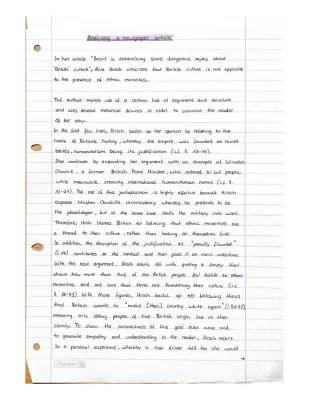 Analysing a newspaper article
In her article "Brexit is entrenching some dangerous myths about
'British' culture", Afua Hirsch criticises that British culture is not opposite
to the presence of ethnic minorities.
The author makes use of a certain line of argument and structure
and uses several rhetorical devices in order to convince the reader
of her view.
In the first few lines, Hirsch backs up her opinion by referring to the
roots of Britains history, whereby the empire was founded on racist
beliefs, humanitarianism being its justification (c.f. l.
She continues by expanding her argument with an example of Winston
Churchill, a former British Prime Minister, who ordered to kill people,
while meanwhile creating international humanitarian norms (c.f. l.
The use of this juxtaposition is highly effective because Hirsch
exposes Winston Churchills inconsistency whereby he pretends to be
the peacekeeper, but at the same time leads the military into wars.
Therefore, Hirsh blames Britain for believing that ethnic minorities are
a thread to their culture, rather than looking on themselves first.
In addition, the description of the justification as "proudly flaunted"
contributes to the context and even gives it an ironic undertone.
With the next argument, Hirsch starts off with quoting a survey that
shows how more than half of the British people feel hostile to ethnic
minorities, and act like that them are threatening their culture (c.f.
With these figures, Hirsch backs up her following thesis
that Britain wants to "make [their] country white again"
meaning only letting people of true British origin live in their
country. To show the incorrectness of this goal even more and
to generate empathy and understanding in the reader, Hirsch refers
to a personal experience, whereby a taxi driver told her she would